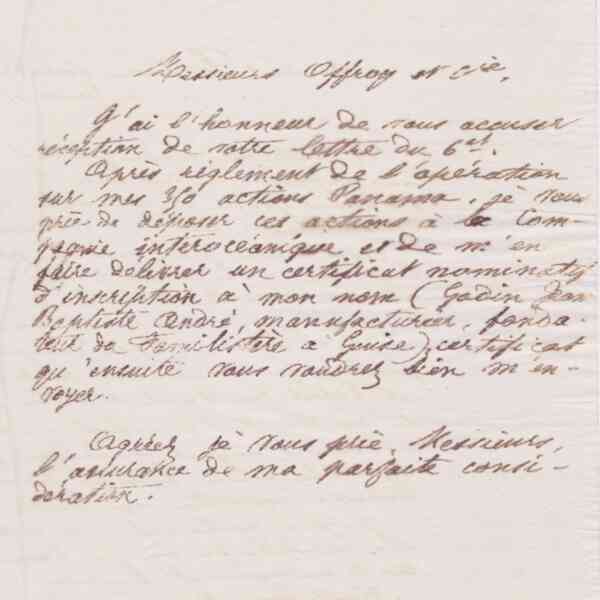 Messieurs Offroy et Cie,
J'ai l'honneur de vous accuser
réception de votre lettre du 6 ct.
Après règlement de l'opération
sur mes 350 actions Panama, je vous
prie de déposer ces actions à la Com-
pagnie interocéanique et de m'en
faire délivrer un certificat nominatif
d'inscription à mon nom (Godin Jean
Baptiste André, manufacturier, fonda-
teur du Familistère à Guise) certificat
qu'ensuite vous voudrez bien m'en-
voyer.
Agréez je vous prie, Messieurs,
l'assurance de ma parfaite consi-
dération.